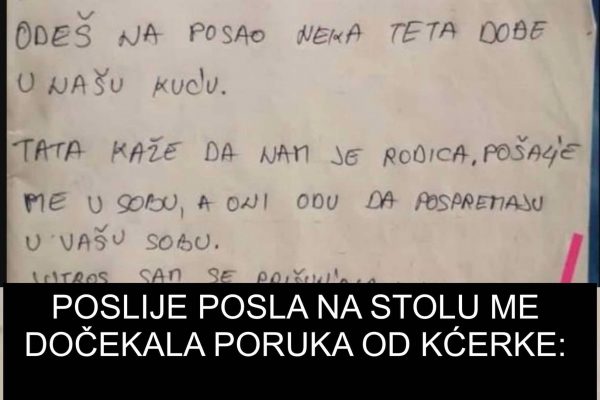 ODEŠ NA POSAO NEKA TETA DOĐE
U NAŠU KUĆU.
TATA KAŽE DA NAM JE RODICA, POŠALJE
ME U SOBU, A ONI ODU DA POSPREMAJU
U VAŠU SOBU.
JUTROS SAM SE
POSLIJE POSLA NA STOLU ME
DOČEKALA PORUKA OD KĆERKE: